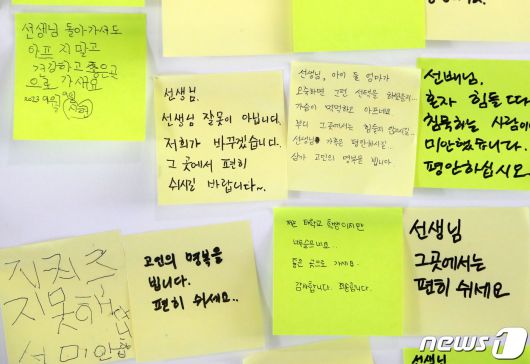 선생님 돌아가셔도
아프지말고
건강하고 좋은곳
으로 가세요
선생님.
선생님 잘못이 아닙니다.
저희가 바꾸겠습니다.
그 곳에서 편히
쉬시길 바랍니다~
선생님, 아이 둘 엄마가
오죽하면 그런 선택을 하셨을지...
가슴이 먹먹하고 아프네요
부디 그곳에서는 힘숨지
선생님 가족분 평안하시길..
삼가 고인의 명복을 빕니다
선배님.
혼자 힘들 때
침묵하는 사람이
미안했습니다.
평안하십시오
지켜주
지못해
미안합
고인의 명복을
빕니다.
편히 쉬세요..
저는 대학교 학생이지만
너무 슬프네요..
좋은 곳으로 가세요.
감사합니다.
선생님
그곳에서는
편히 쉬세요
선생님
news1